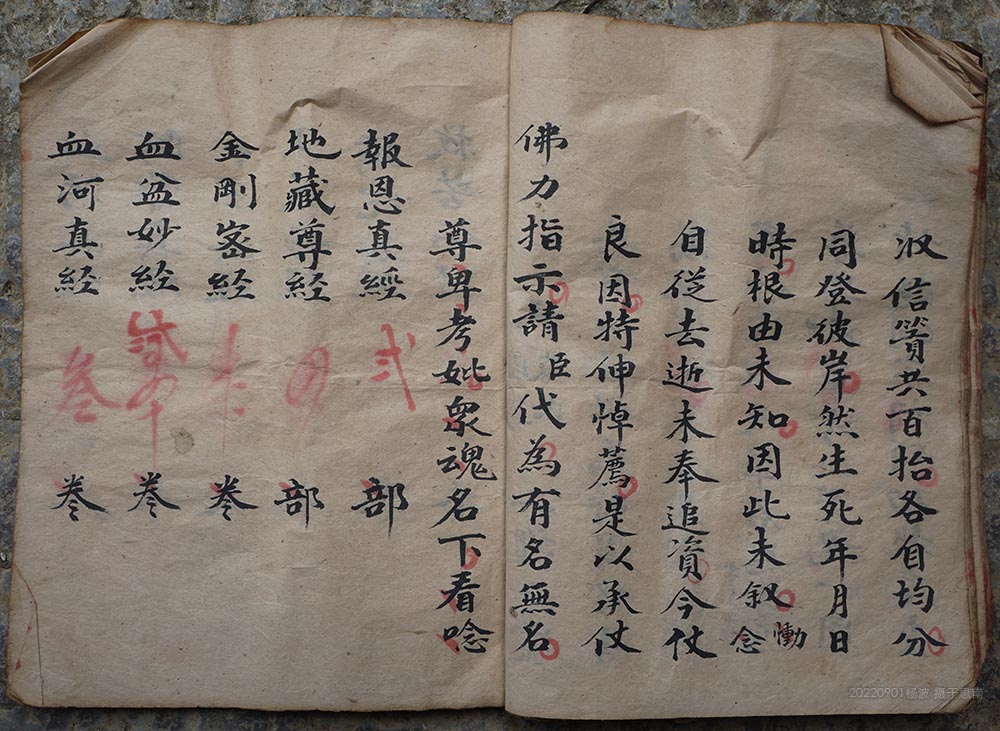 収信賫共百抬各自均分
同登彼岸然生死年月日
時根由未知因此未叙慟念
自從去逝未奉追資今仗
良因特伸悼薦是以承仗
佛力指示請臣代為有名無名
尊卑考妣衆魂名下看唸
報恩真經 弍 部
地藏尊経 部
金剛宻経 卷
血盆妙経 卷
血河真経 叁 卷
20220901杨波 摄于思南